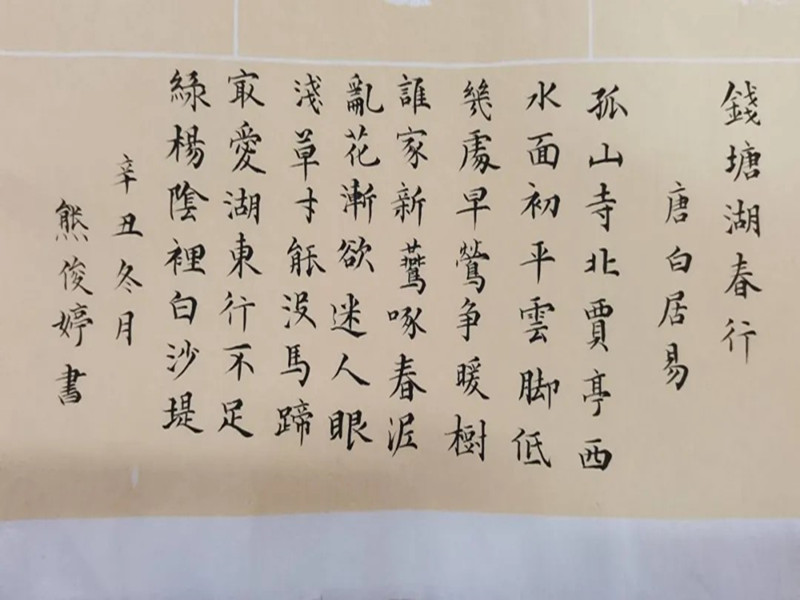 錢塘湖春行
唐白居易
孤山寺北賈亭西
水面初平雲脚低
幾處早鶯争暖樹
誰家新鷰啄春泥
亂花漸欲迷人眼
淺草才能没馬蹄
㝡愛湖東行不足
綠楊陰裡白沙堤
辛丑冬月
熊俊婷書